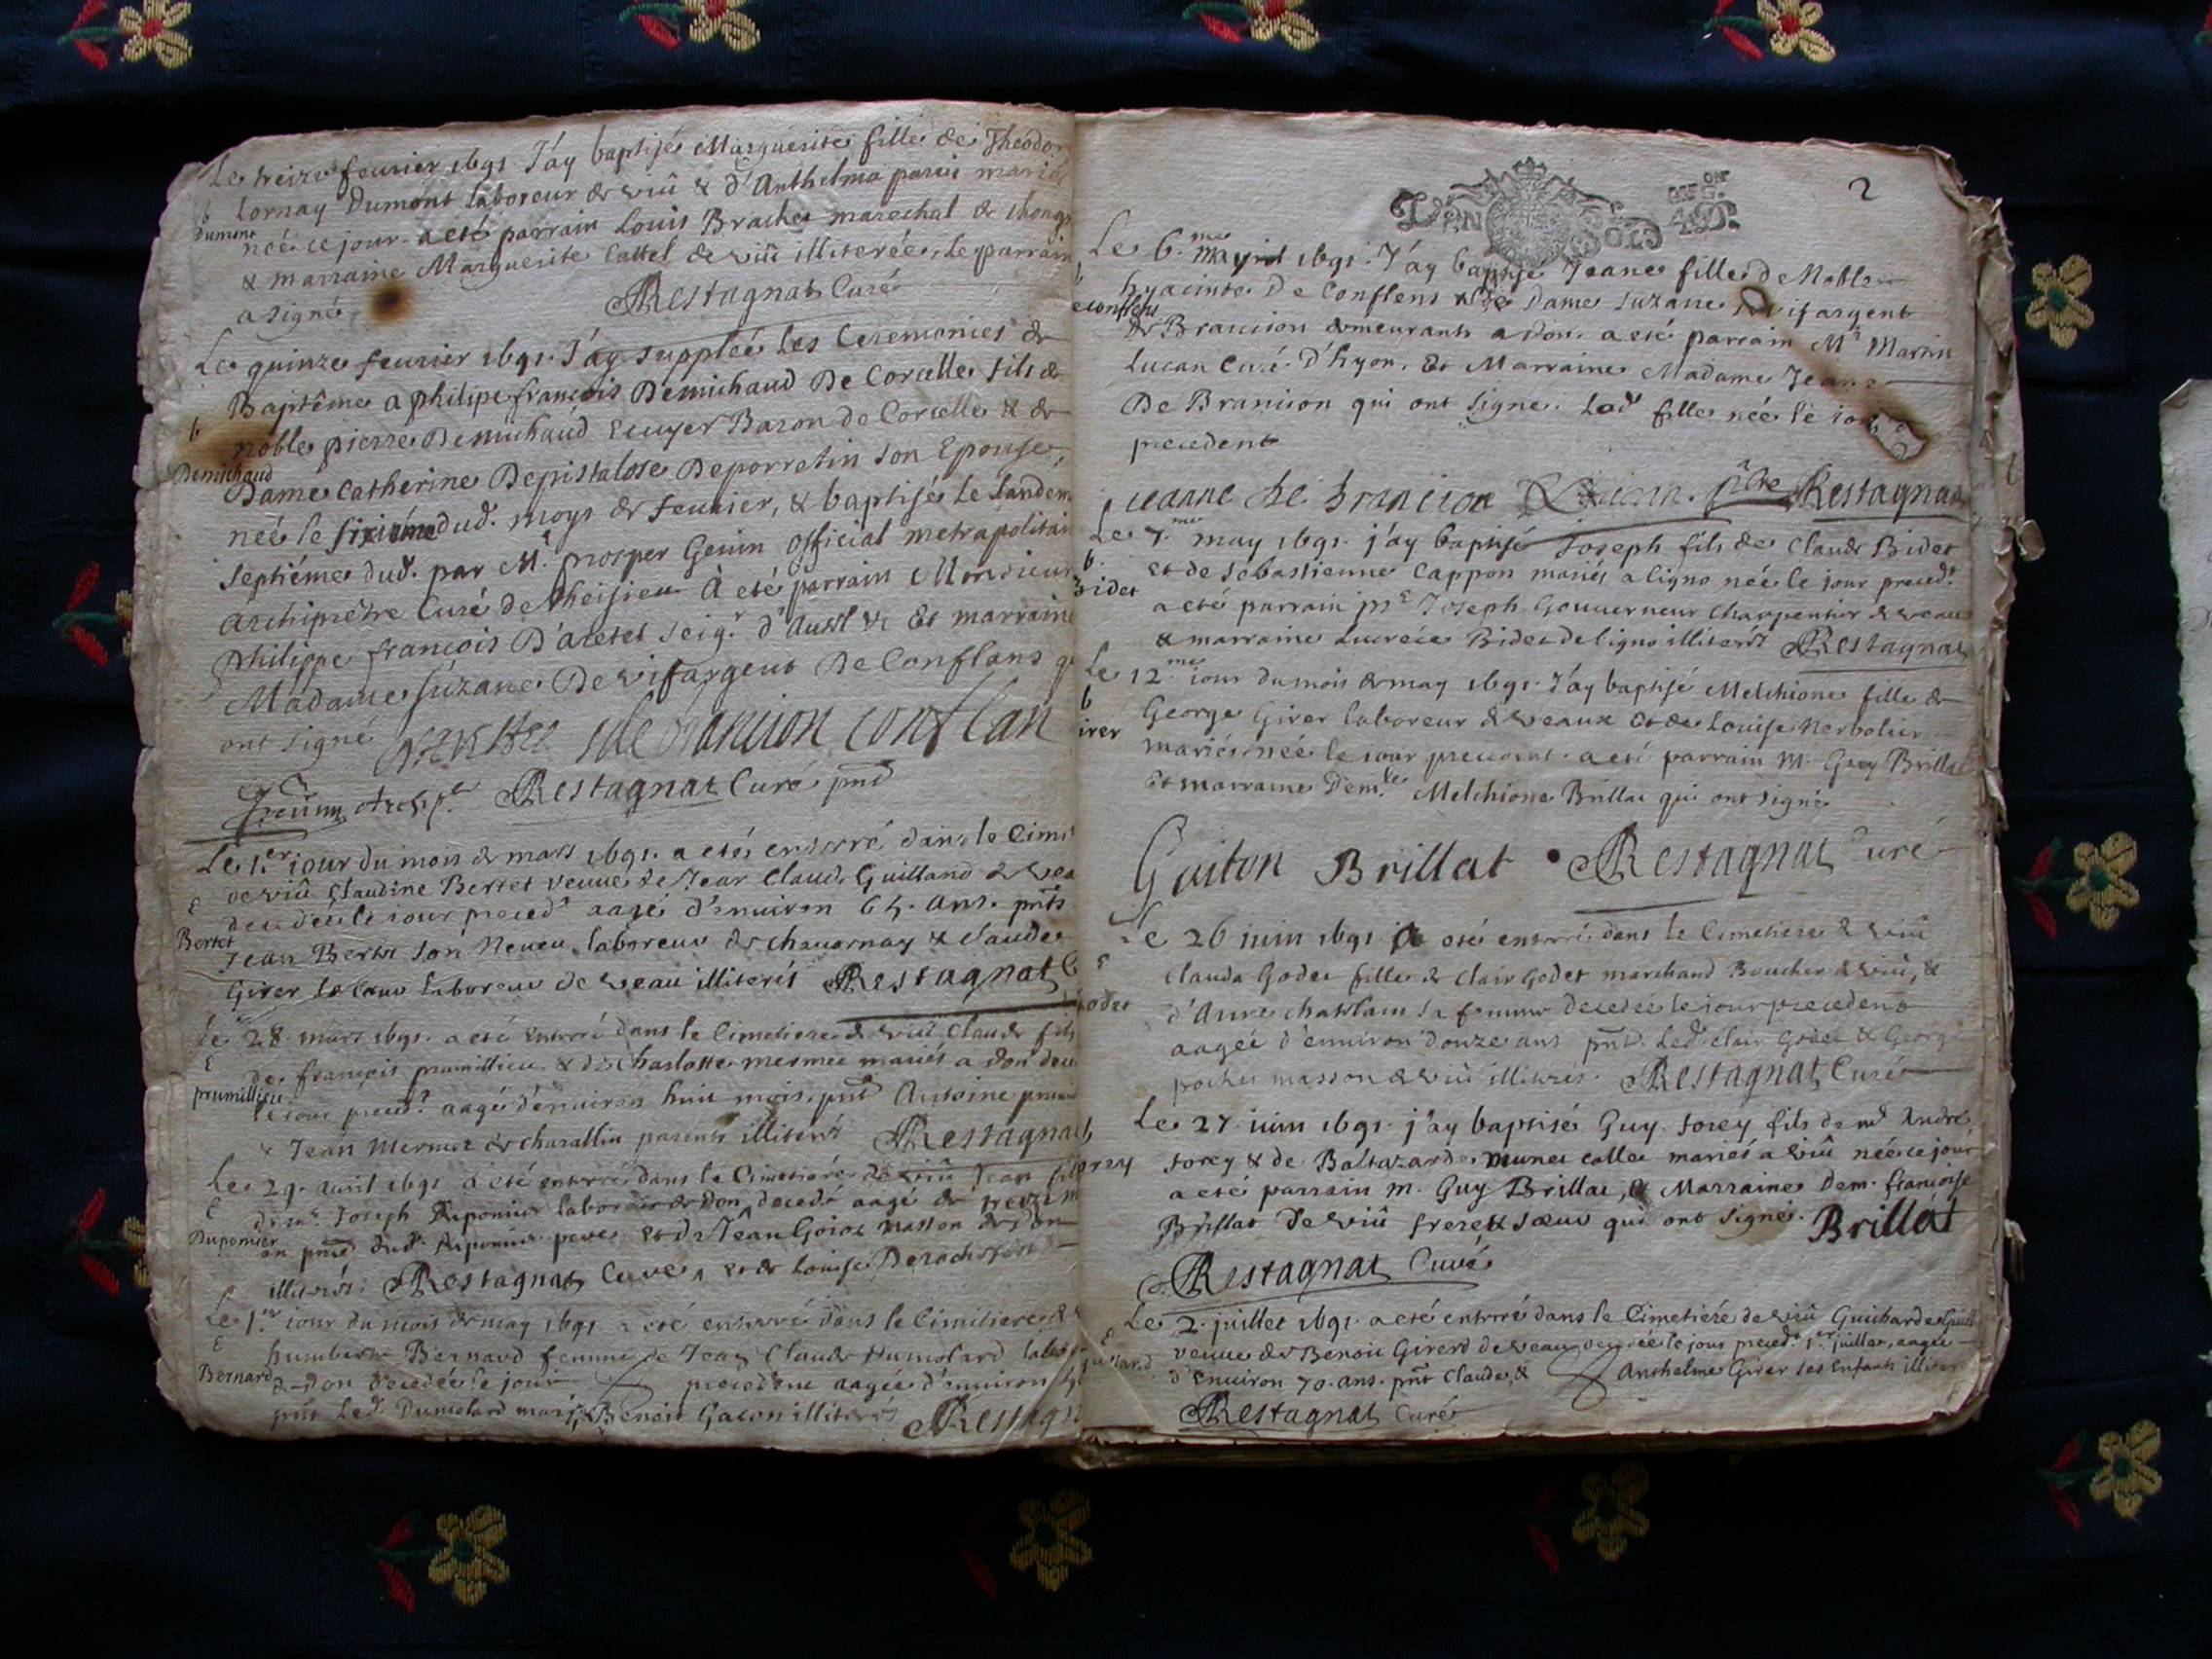 Le treize feurier 1691 J'ay baptisé Marguerite fille de Theodor
Lornay Dumont laboreur de viû & d'Anthelma paris mariés
b
dumont
née ce jour a eté parrain Louis Brachet marechal de
& marraine Marguerite Cattel de viû illiterée, le parrain
a signé
Restagnat Curé
Le quinze feurier 1691 J'ay suppleé les Ceremonies de
Baptême a philipe françois Demichaud De Corcelle fils de
b
Demichaud
noble pierre Demichaud Ecuyer Baron de Corcelle & de
Dame Catherine Depistalose Deporretin son Epouse,
neé le sixiéme dud. moys de feurier, & baptisé le landem
septiéme dud. par Mr. prosper Genin official metrapolitain
Archiprêtre Curé de Cheisieu A eté parrain Monsieur
Philippe françois D'arestel seigr. d' & Et marraine
Madame suzane De vifargent De Conflans q
ont signé
de brancion conflan
Restagnat Curé pnt
Le 1.er iour du mois de mars 1691. a etés enterré dans le Cimi
E
Bertet
de viû Claudine Bertet veuue de Jean Claude Guilland de vea
decedée le iour preced.t aagé d'enuiron 65. ans. pnts
Jean Bertet son Neueu laboreur de chauornay & claude
Girer laboreur de veau illiterés Restagnat C
Le 28. mars 1691. a eté enterré dans le Cimetiere de viû Claude fils
E
prumillieu
de françois prumillieu & de Charlotte mermet mariés a don dece
le iour preced.t aagé d'enuiron huit mois. pnt Antoine prum
& Jean Mermet de charallin parents illiterés Restagnat
Le 29. auril 1691 a eté enterré dans le Cimetiére de viû Jean fil
E
Duponier
de mr. Joseph Duponier laboreur de Don, decedé aagé de treze m
an pnt dud. Duponier pere et de Jean Goior masson de don
illiterés. Restagnat Curé, et de Louise Derochefort
Le 1.er iour du mois de may 1691 a eté enterré dans le Cimitiere de
E
Bernard
humberte Bernard femme de Jean Claude Dumolard labo
de don decedée le jour precedent aagée d'enuiron
pnt Led. Dumolard mari, & Benoit Gacon illiterés Restagn
2
DEN SOLS 4 D.
Le 6.me may 1691. J'ay baptisé Jeane fille de Noble
b
econflens
hyacinte De Conflens & de Dame suzane vifargent
de Brancion demeurants a don. a eté parrain Mr Martin
Lucan Curé d'hyon. Et Marraine Madame Jeane
De Brancion qui ont signe. Lad. fille née le iour
precedent
jeanne de brancion ptre Restagnat
Le 7.me may 1691. j'ay baptisé Joseph fils de Claude Bidet
b.
Bidet
et de sebastienne Cappon mariés a ligno née le jour preced.t
a eté parrain mr Joseph Gouuerneur Charpentier de veau
& marraine Lucréce Bidet de ligno illiterés Restagnat
Le 12.me iour du mois de may 1691. J'ay baptisé Melchione fille de
b
irer
George Girer laboreur de veaux et de Louise Nerbolier
mariés née le iour precedent. a eté parrain M. Guy Brillat
et marraine Dem.le Melchione Brillat qui ont signé
Guiton Brillat Restagnat Curé
Le 26 iuin 1691 a eté enterré dans le Cimetiere de viû
E
Godet
Clauda Godet fille de Clair Godet marchand Boucher de viû, &
d'Anne chatelain sa femme decedée le iour precedent
aagée d'enuiron douze ans pnt. Led. clair Godet & Georg
pochet masson de viû illiterés. Restagnat Curé
Le 27 iuin 1691. j'ay baptisé Guy sorey fils de md André
orey
sorey & de Baltazarde mune calle mariés a viû née ce jour
a eté parrain m. Guy Brillat, & Marraine Dem. françoise
Brillat de viû frere & sœur qui ont signé. Brillat
Restagnat Curé
Le 2. juillet 1691. a eté enterré dans le Cimetiére de viû Guicharde
E
veuue de Benoit Girerd de veau decedée le jour preced.t 1.er juillet, aagée
d'enuiron 70. ans. pnt Claude, & Anthelme Girer ses enfants illiter
Restagnat Curé